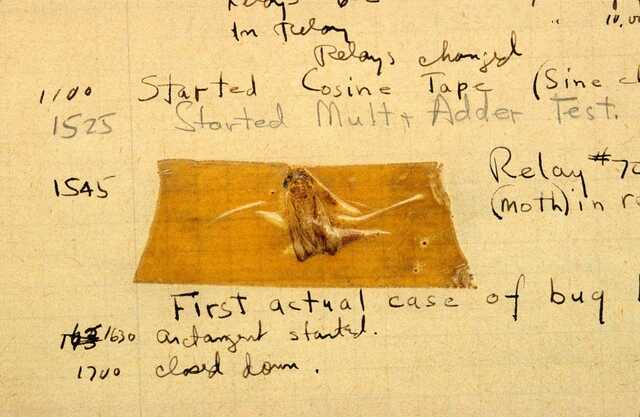 In Relay
Relays changed
1100 Started Cosine Tape (Sine
1525 Started Mult + Adder Test.
Relay #70
1545
(moth) in
First actual case of bug
1630 arctangent started.
1700 closed down.